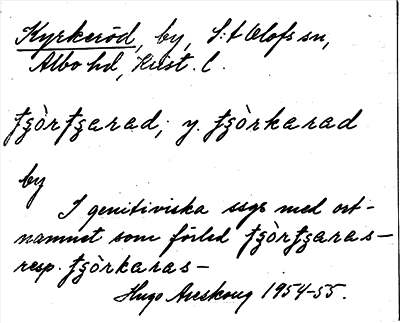 Kyrkeröd, by, S:t Olofs sn,
Albo hd, Krist. l.
ꞇʒòrꞇʒarad; y. ꞇʒòrkarad
by
I genitiviska ssgr med ort-
namnet som förled ꞇʒòrꞇʒaras-
resp. ꞇʒòrkaras-
Hugo Areskoug 1954-55.